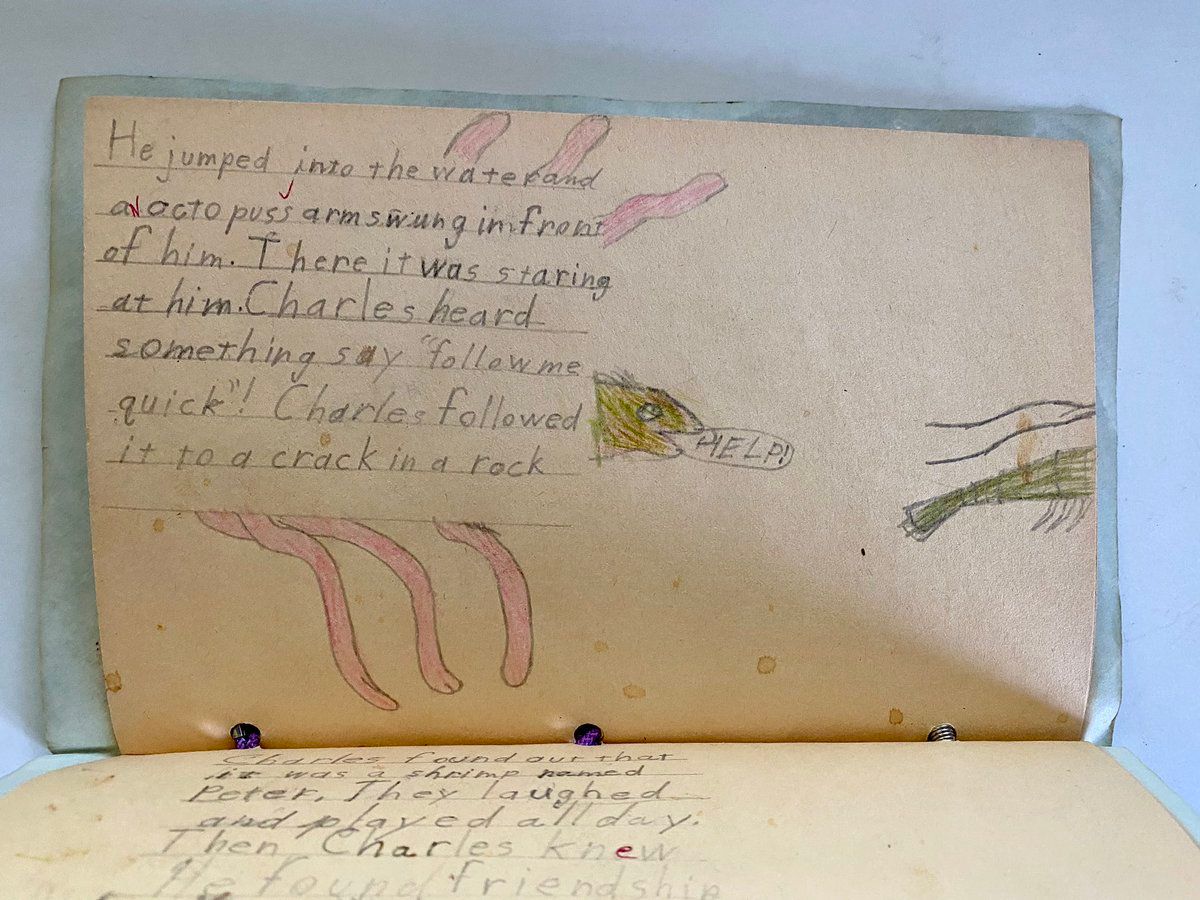 He jumped into the water and
a octopuss arm swung in front
of him. There it was staring
at him. Charles heard
something say "follow me
quick"! Charles followed
it to a crack in a rock
HELP!
Charles found out that
it was a shrimp named
Peter. They laughed
and played all day.
Then Charles knew
He found friendship